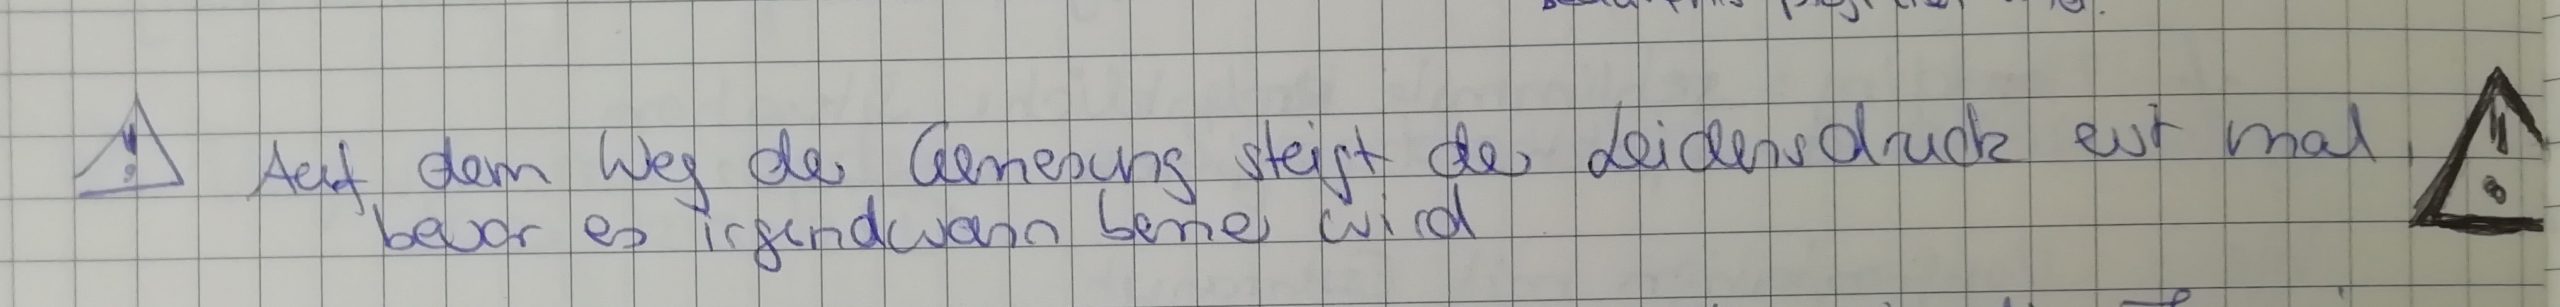 Auf dem Weg der Genesung steigt der Leidensdruck erst mal,
bevor es irgendwann besser wird